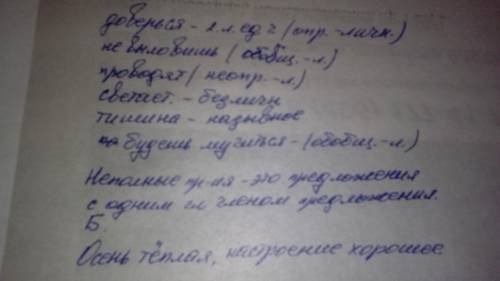 доверься - 2 л. ед. ч (опр.-личн.)
не выловишь (обобщ.-л.)
проводят (неопр.-л)
светает. - безличн
тишина - назывное
будешь мучиться - (обобщ.-л.)
Неполные пр-ия - это предложения
с одним гл членом предложения.
Б.
Осень тёплая, настроение хорошее